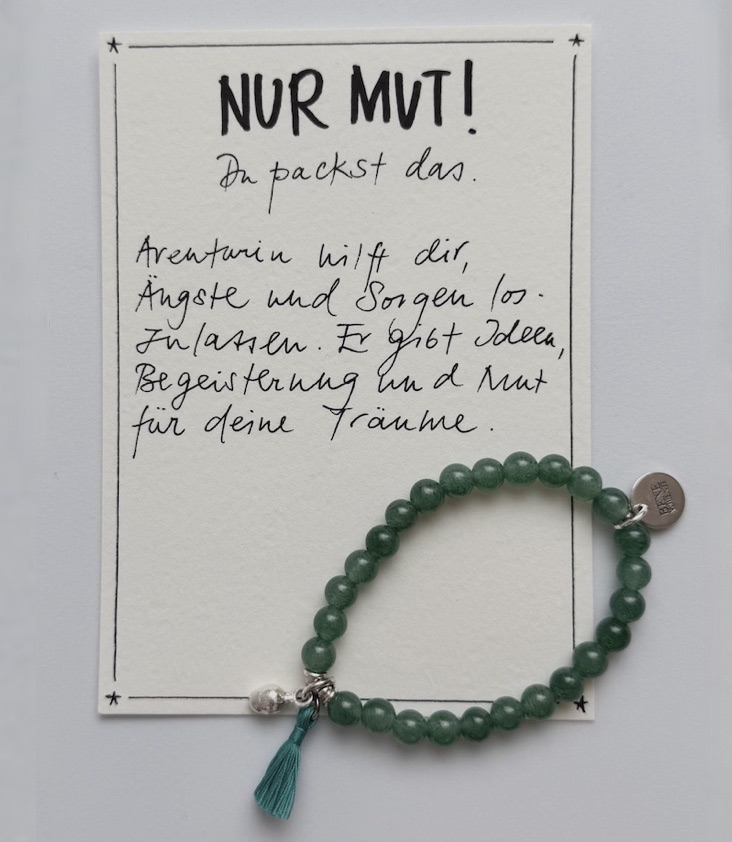 NUR MUT!
Du packst das.
Aventurin hilft dir,
Ängste und Sorgen los-
zulassen. Er gibt Ideen,
Begeisterung und Mut
für deine Träume.